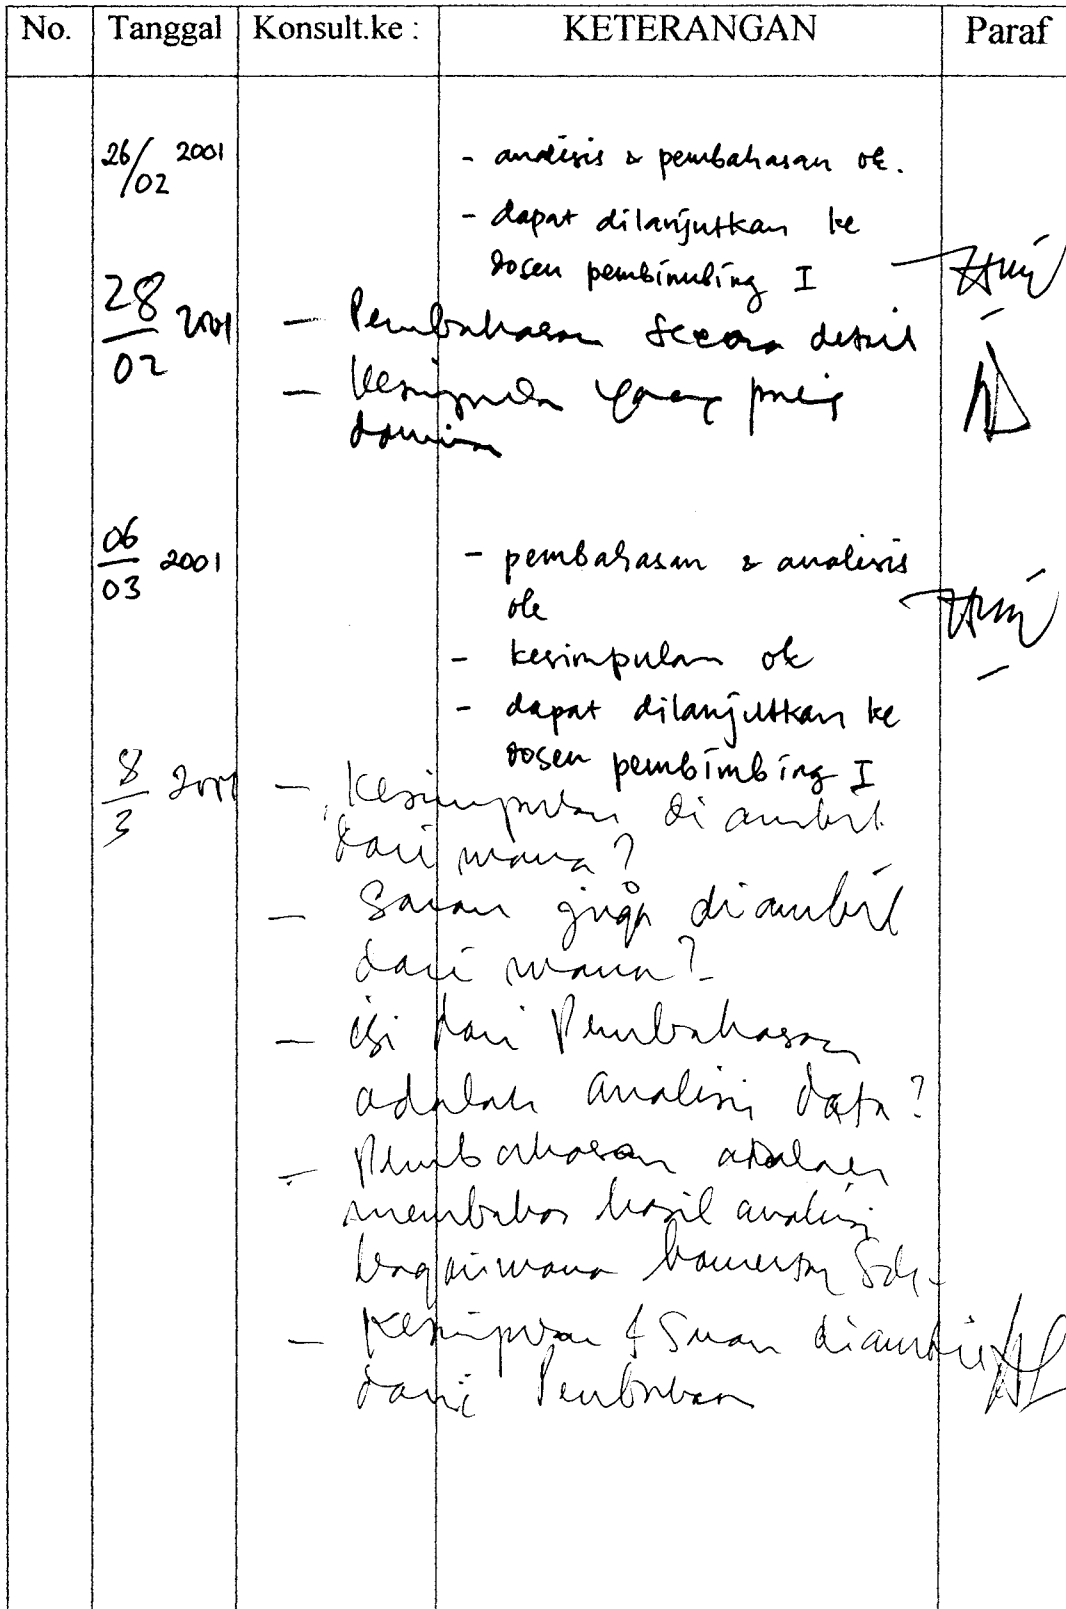 No. Tanggal Konsult.ke : KETERANGAN Paraf
26/02 2001 - analisis & pembahasan ok.
- dapat dilanjutkan ke
dosen pembimbing I
28/02 2001 - Pembahasan secara detail
- Kesimpulan yang paling
dominan
06/03 2001 - pembahasan & analisis
ok
- kesimpulan ok
- dapat dilanjutkan ke
dosen pembimbing I
8/3 2001 - Kesimpulan di ambil
dari mana?
- Saran juga diambil
dari mana?
- isi dari Pembahasan
adalah analisis data?
- Pembahasan adalah
membahas hasil analisis
bagaimana
- Kesimpulan & Saran diambil
dari Pembahasan